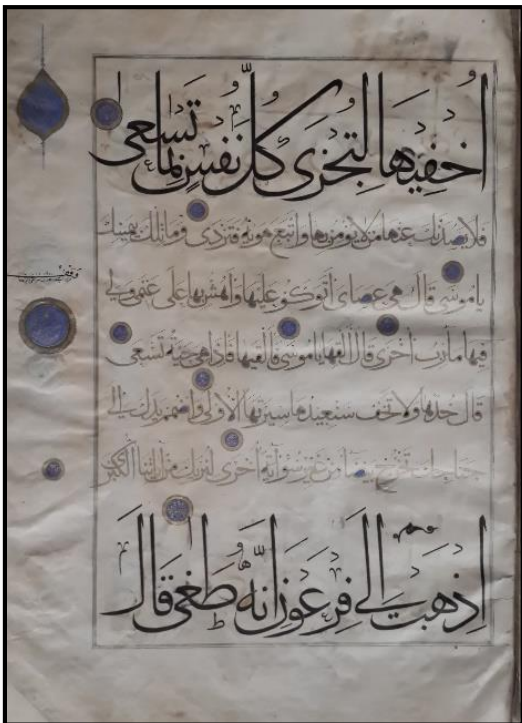 اُخْفِيهَا لِتُجْزَى كُلُّ نَفْسٍ بِمَا تَسْعَى
فلا يصدنك عنها من لا يؤمن بها واتبع هويه فتردى وما تلك بيمينك
يا موسى قال هى عصاى اتوكؤ عليها واهش بها على غنمى ولى
فيها مآرب اخرى قال القها يا موسى فالقيها فاذا هى حية تسعى
قال خذها ولا تخف سنعيدها سيرتها الاولى واضمم يدك الى
جناحك تخرج بيضاء من غير سوء آية اخرى لنريك من آياتنا الكبرى
اِذْهَبْ اِلَى فِرْعَوْنَ اِنَّهُ طَغَى قَالَ
وقف